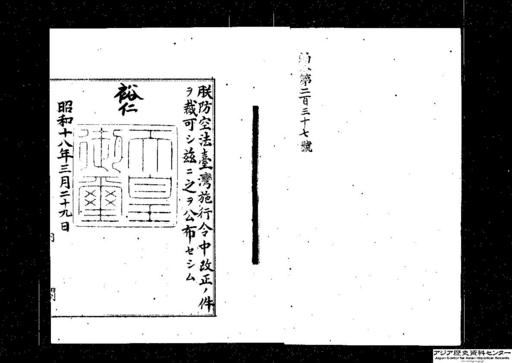 勅令第二百三十七號
朕防空法臺灣施行令中改正ノ件
ヲ裁可シ茲ニ之ヲ公布セシム
裕仁
天皇
御璽
昭和十八年三月二十九日
アジア歴史資料センター
Japan Center for Asian Historical Records